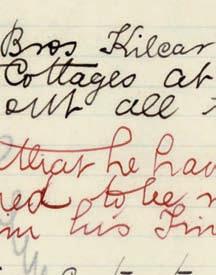 Bros Kilcar
Cottages at
out all
that he hav
red to be n
im his Fin